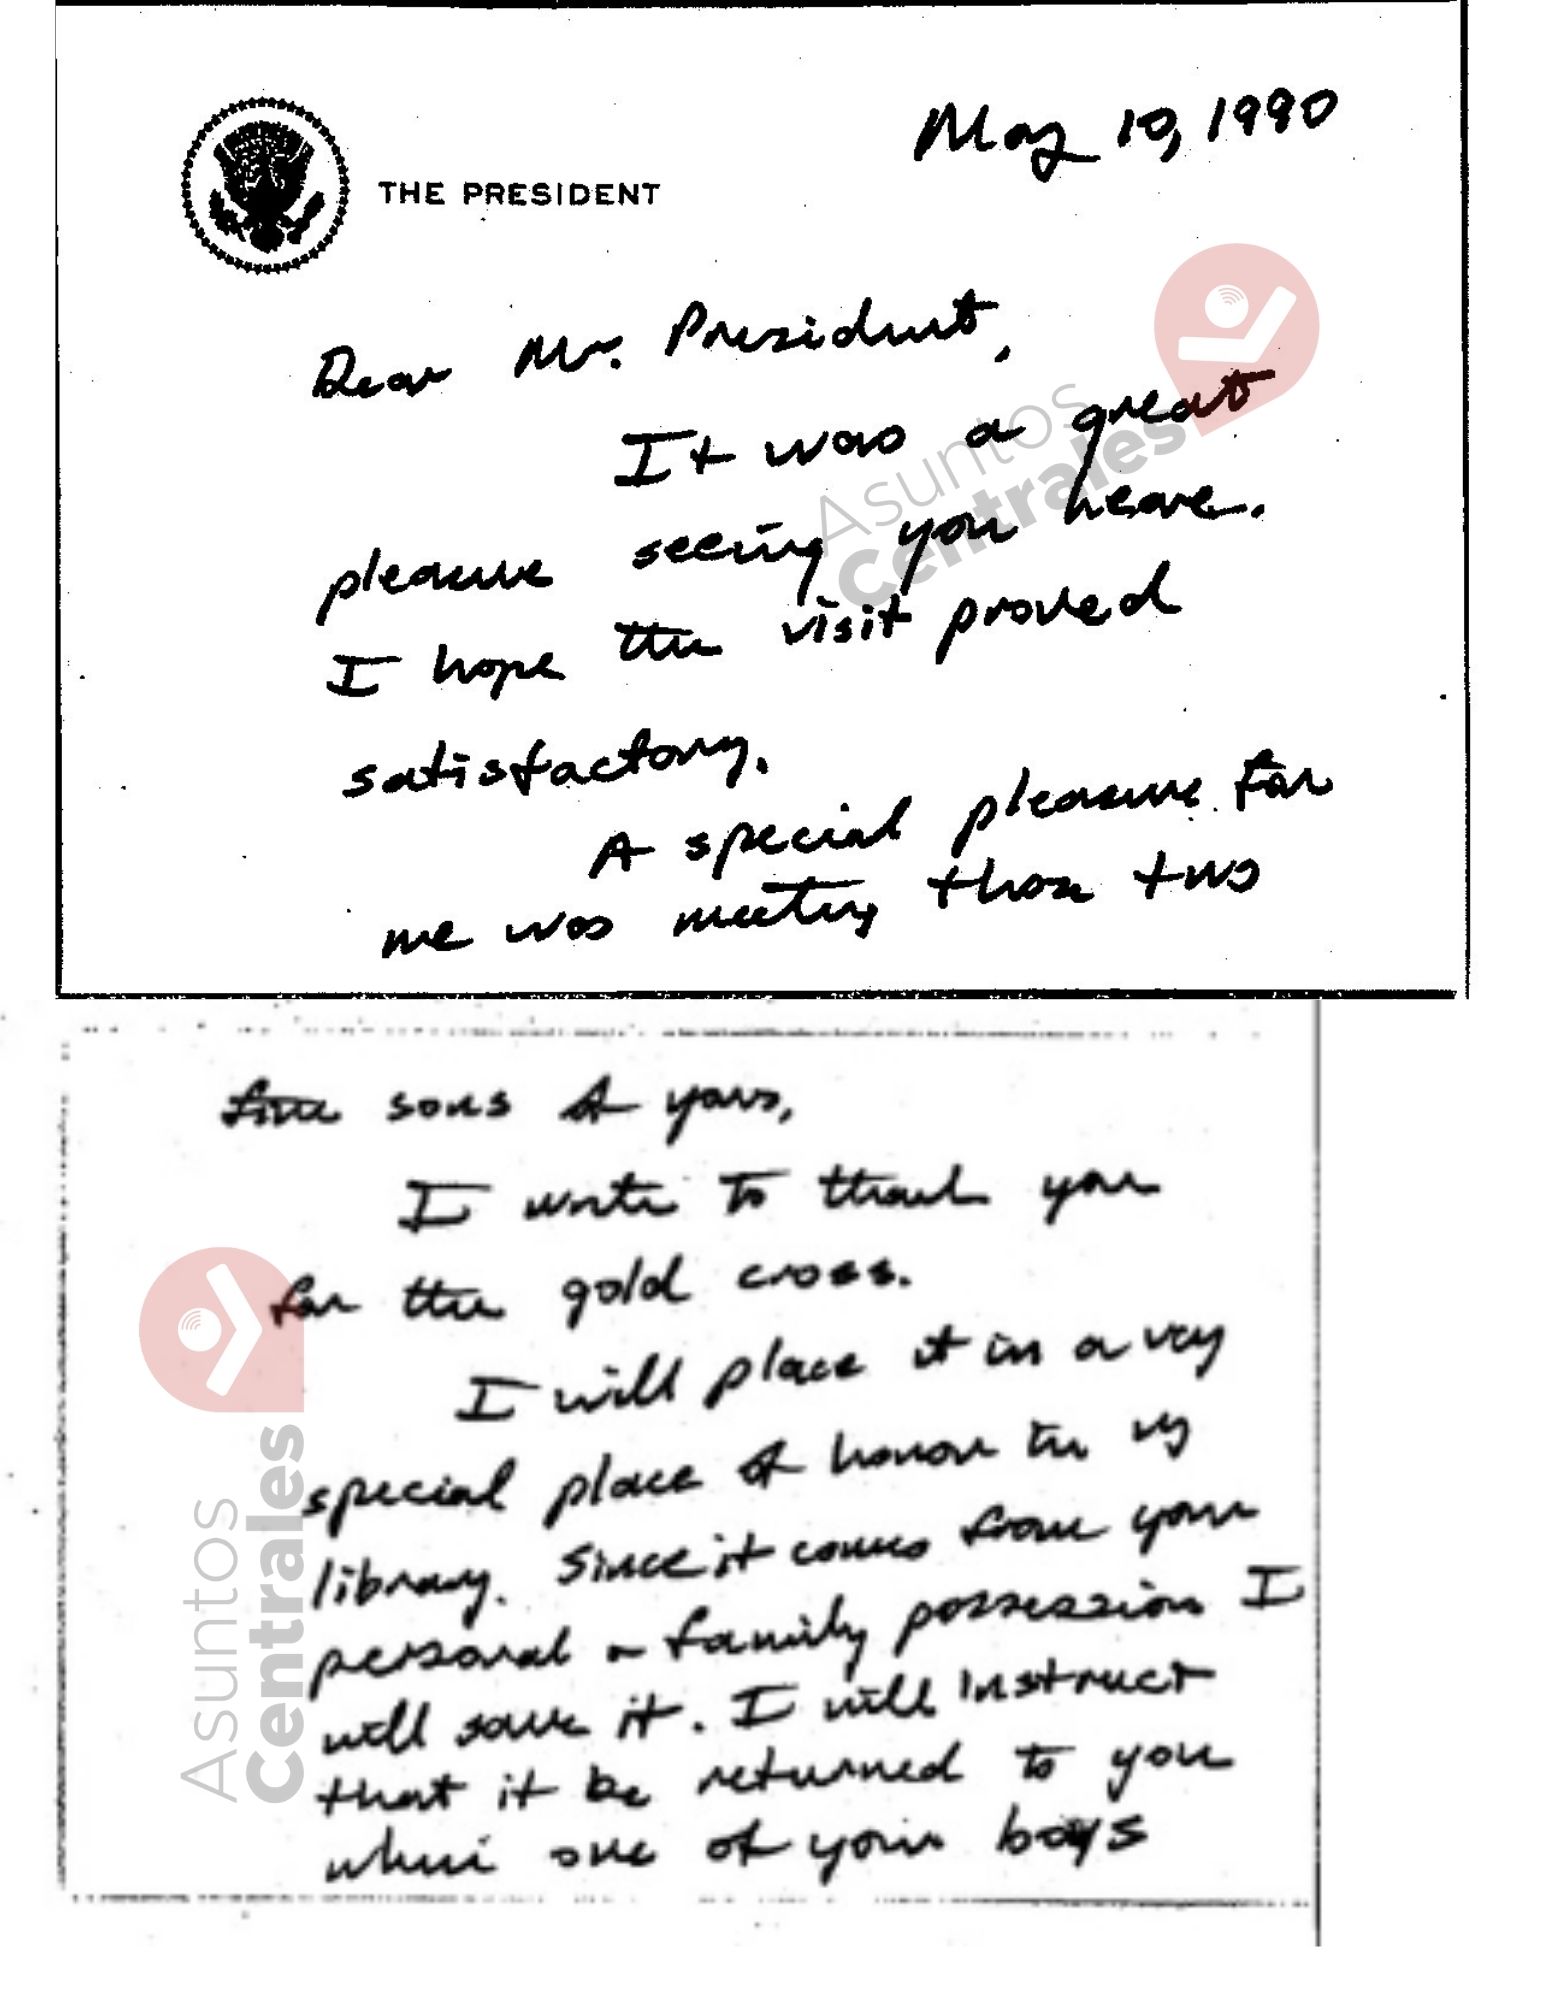 May 10, 1990
THE PRESIDENT
Dear Mr. President,
It was a great
pleasure seeing you here.
I hope the visit proved
satisfactory.
A special pleasure for
me was meeting those two
fine sons of yours,
I write to thank you
for the gold cross.
I will place it in a very
special place of honor in my
library. Since it comes from your
personal or family possession I
will save it. I will instruct
that it be returned to you
when one of your boys
Asuntos
Centrales
Asuntos
Centrales